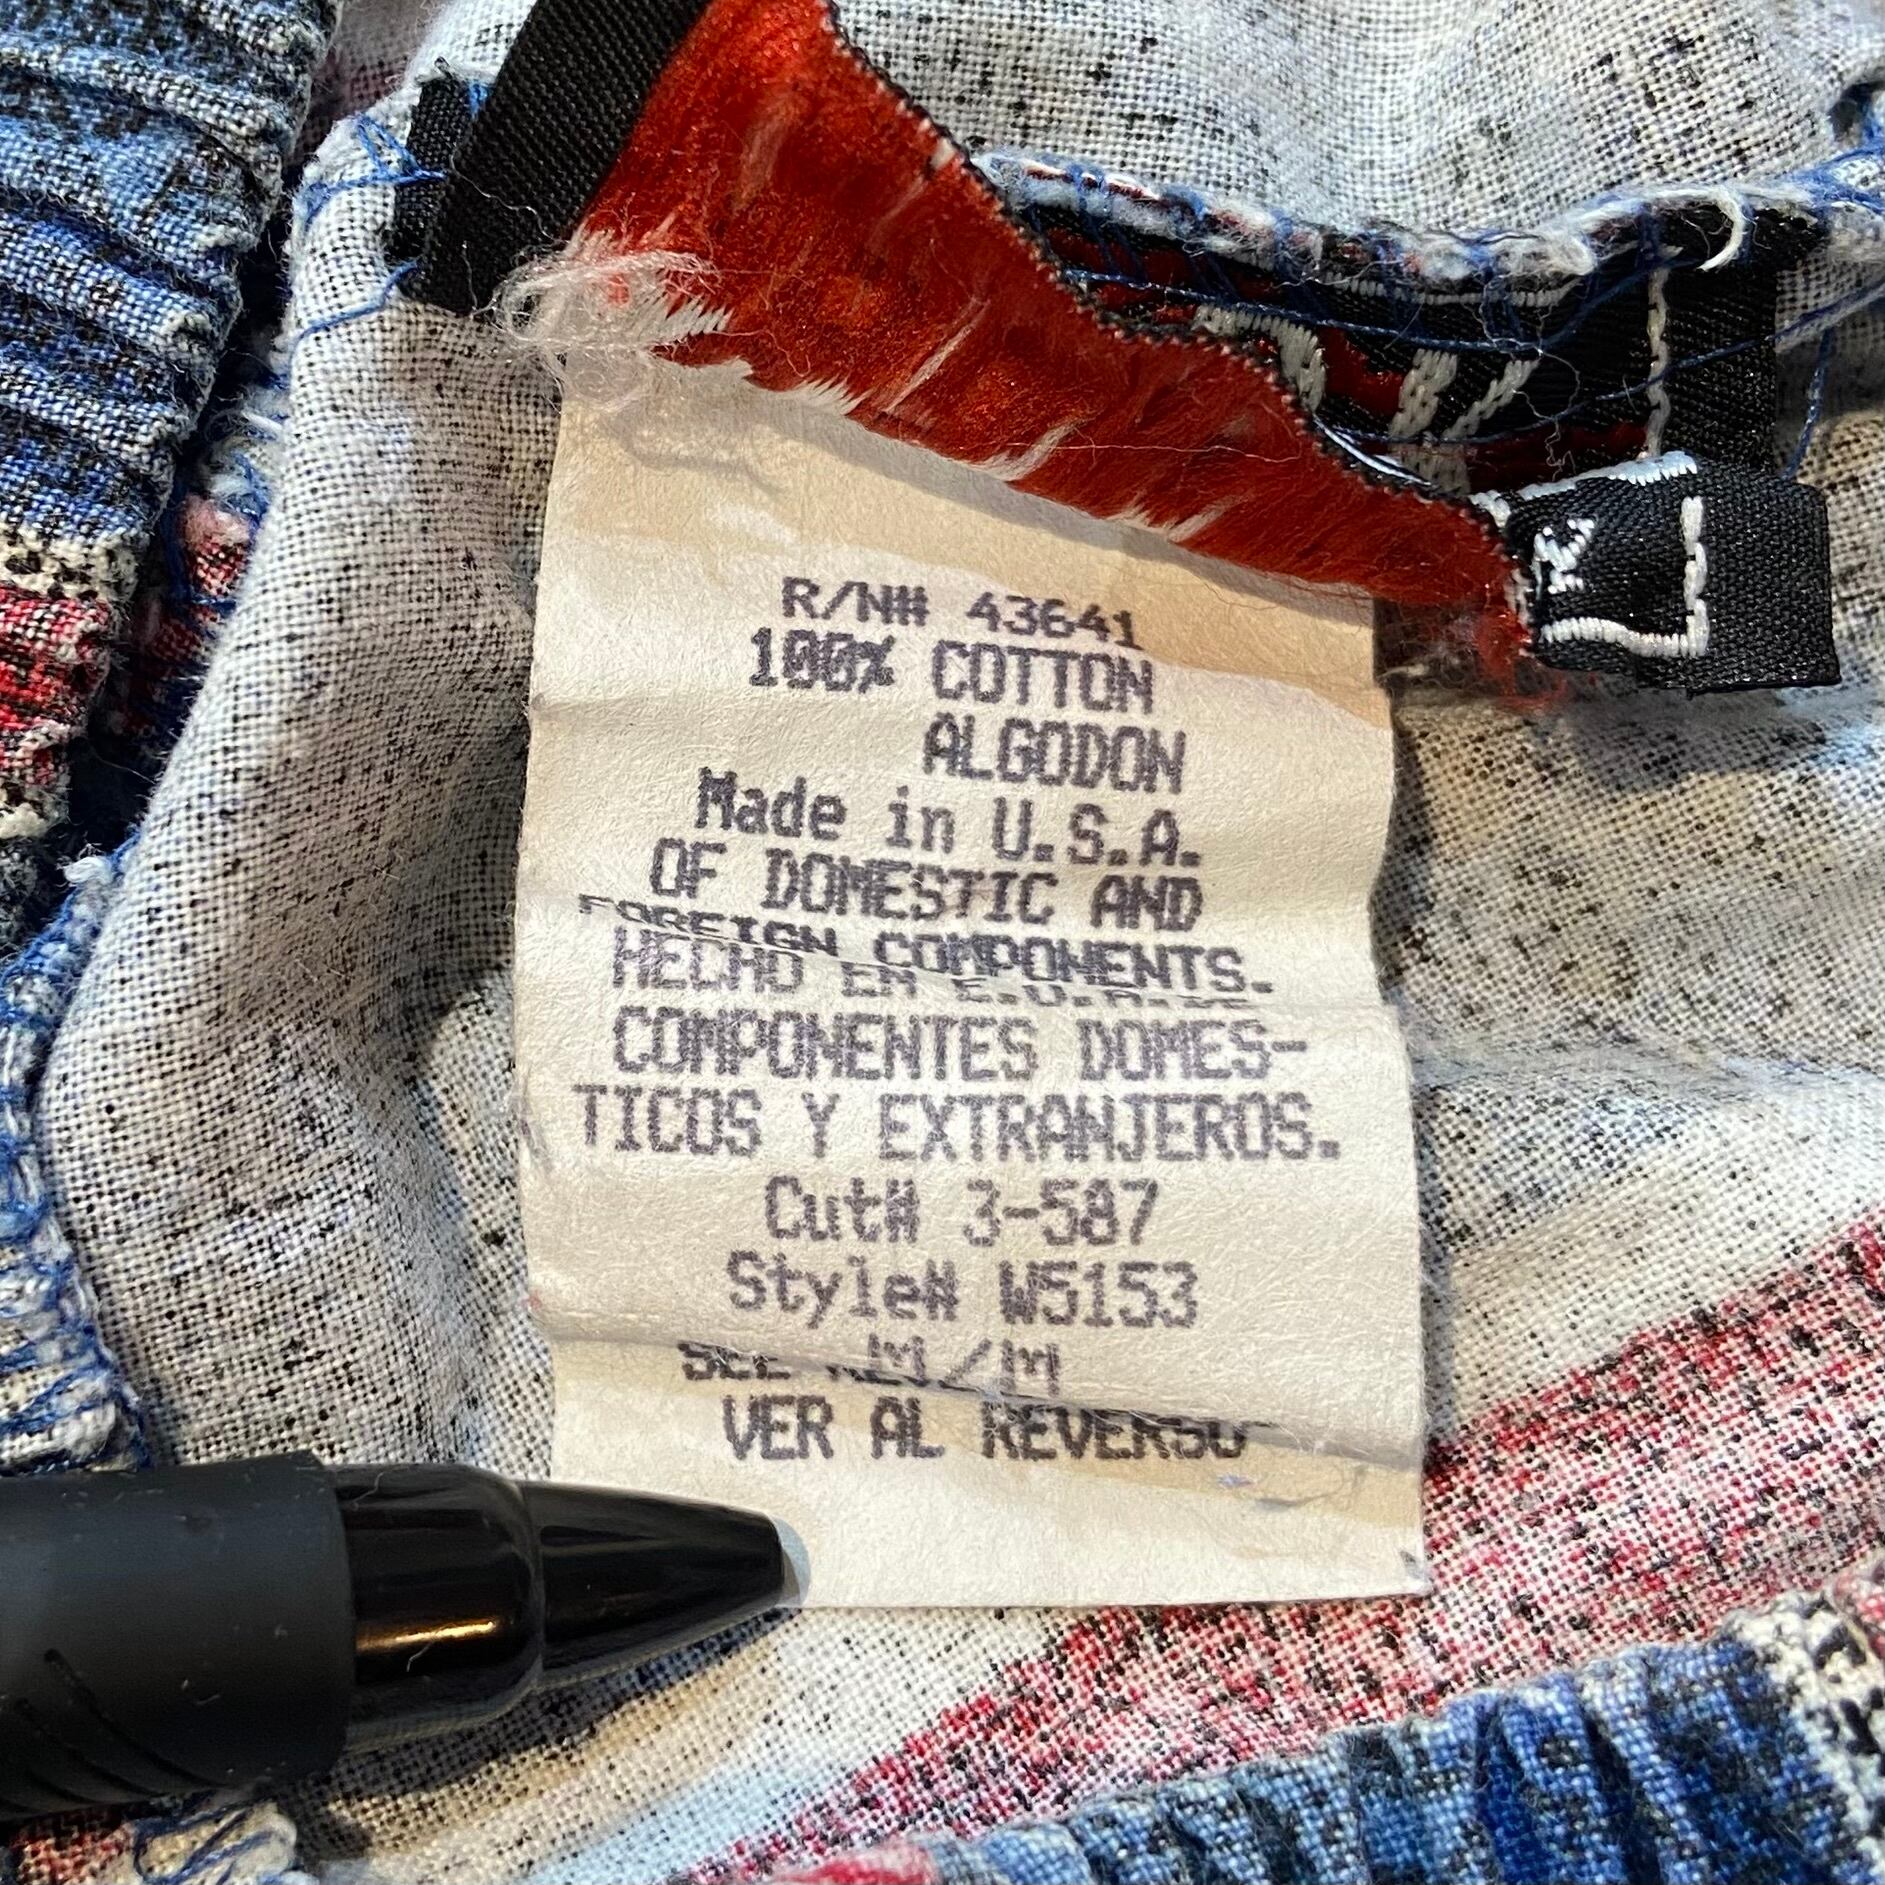 R/N# 43641
100% COTTON
ALGODON
Made in U.S.A.
OF DOMESTIC AND
FOREIGN COMPONENTS.
HECHO EN E.U.A. DE
COMPONENTES DOMES-
TICOS Y EXTRANJEROS.
Cut# 3-587
Style# W5153
M/M
SEE
VER AL REVERSO